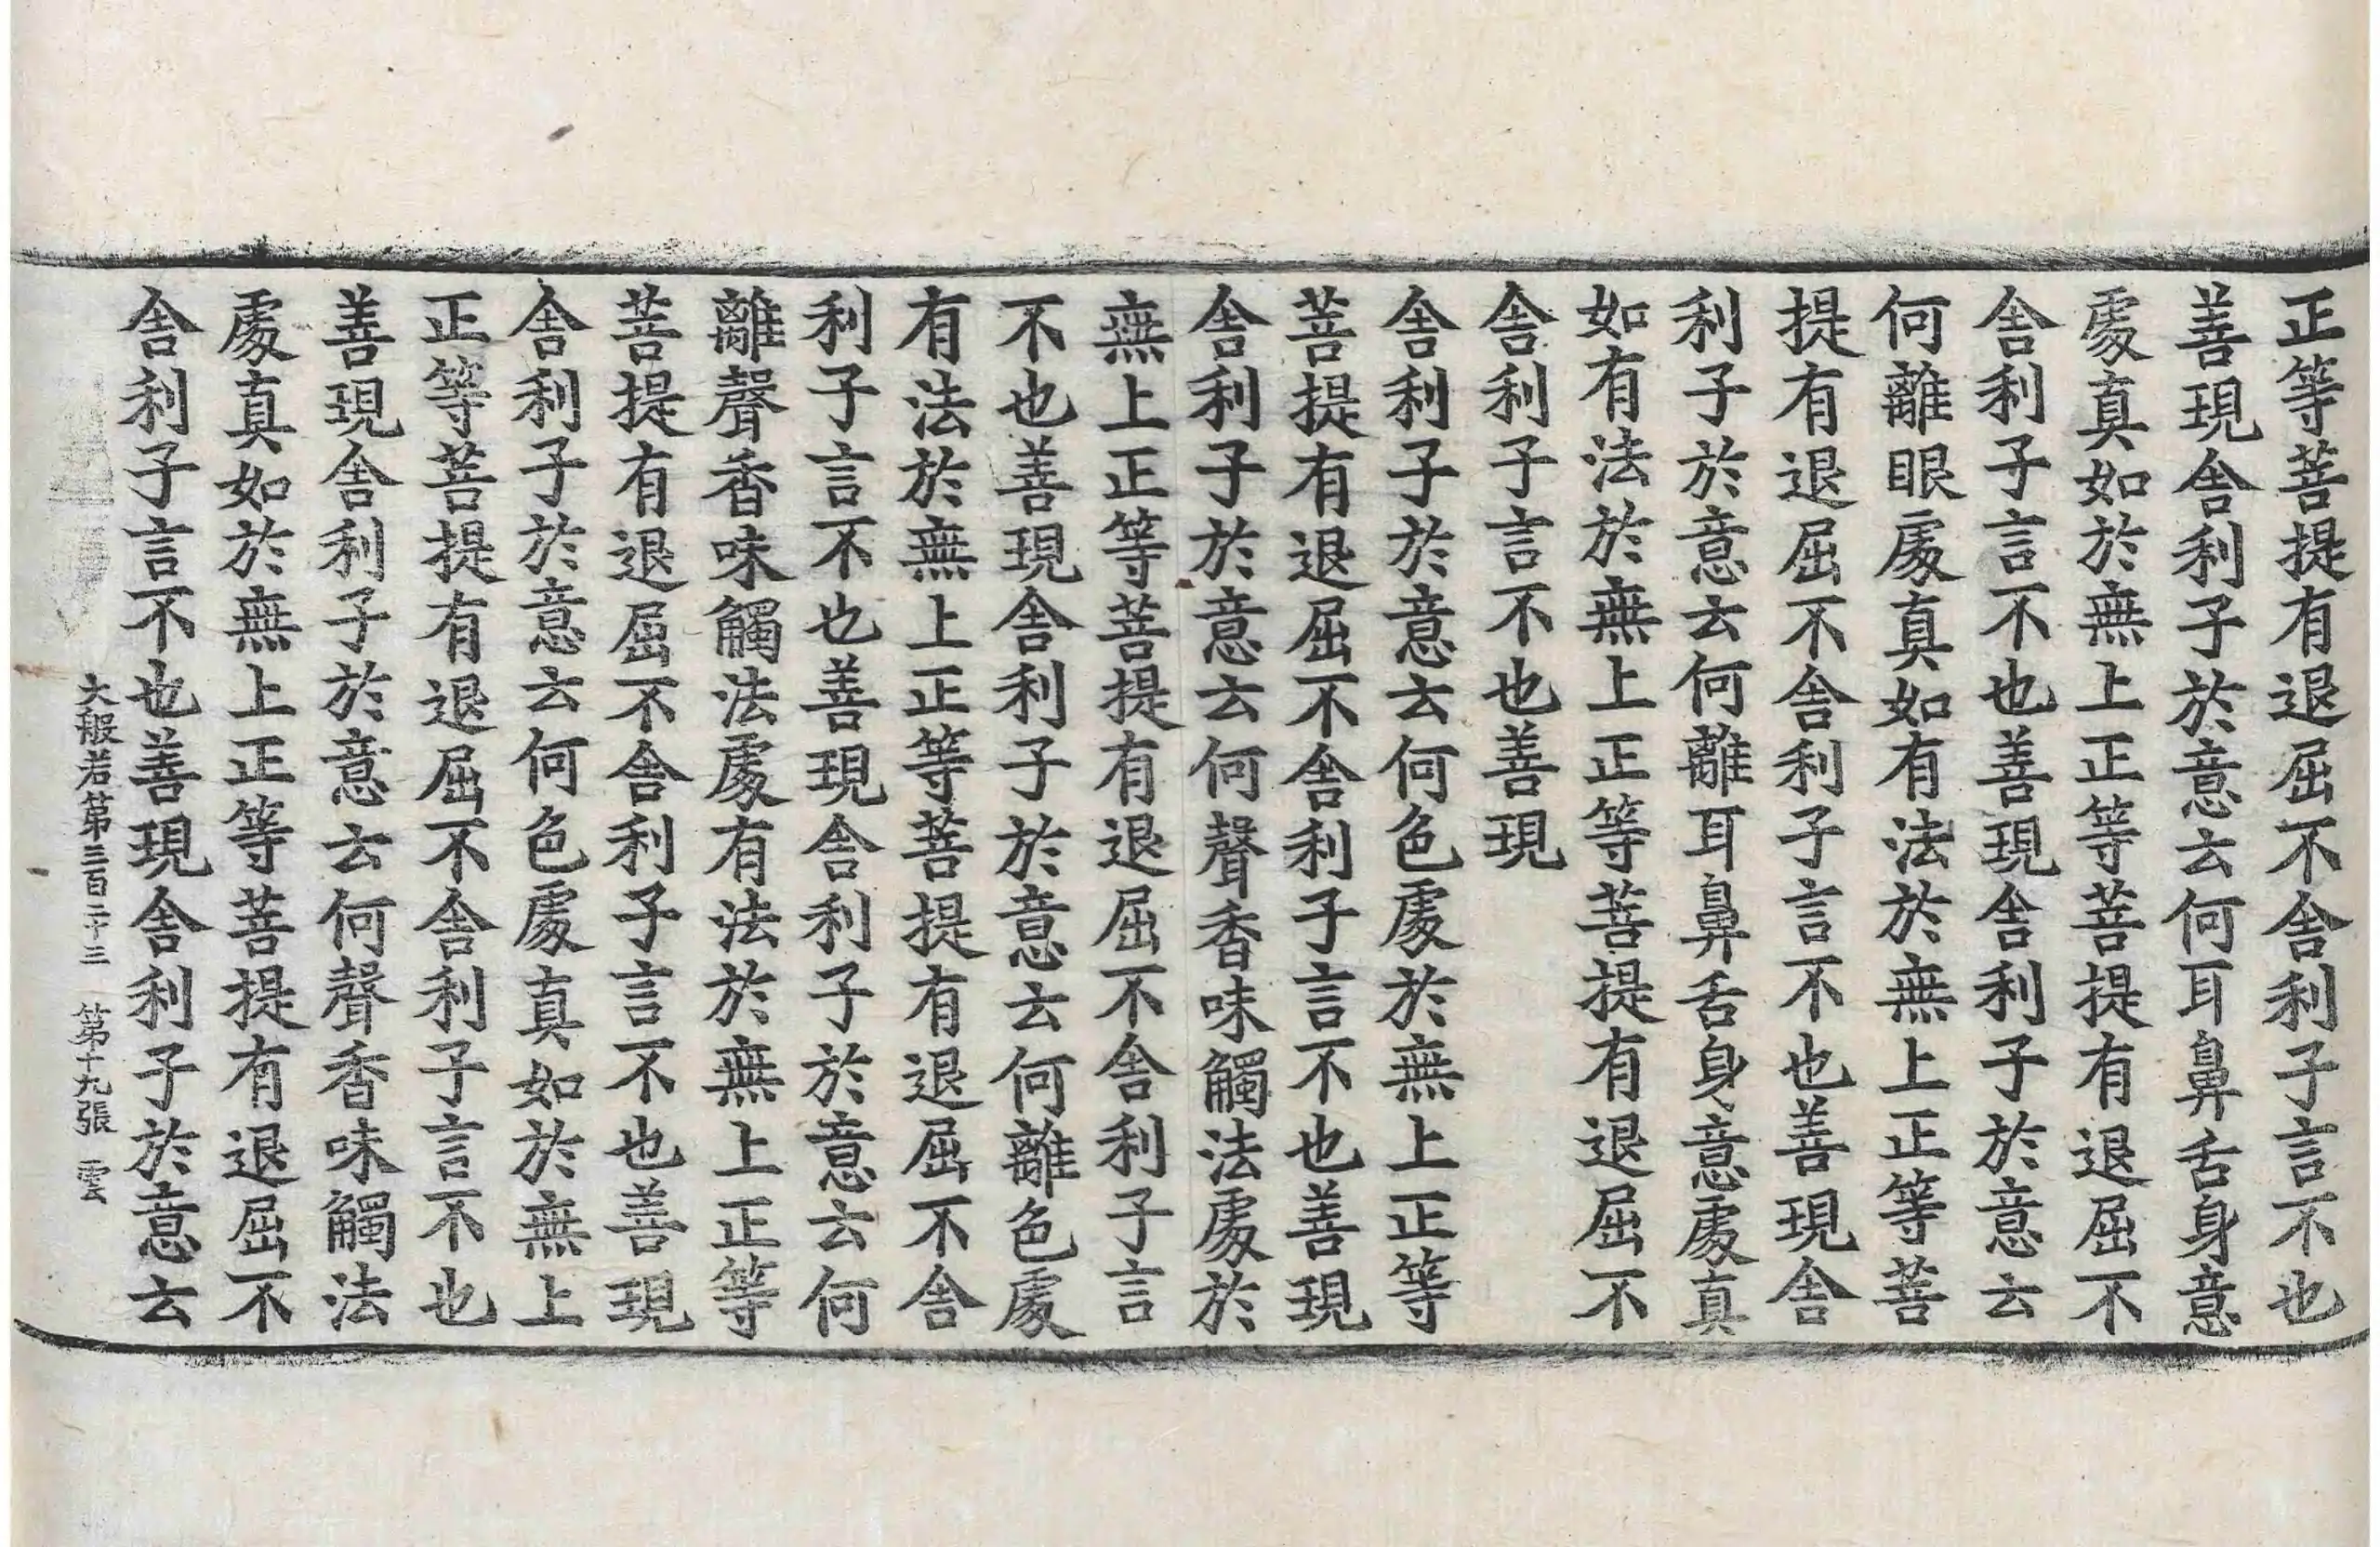 正等菩提有退屈不舎利子言不也
善現舎利子於意云何耳鼻舌身意
處真如於無上正等菩提有退屈不
舎利子言不也善現舎利子於意云
何離眼處真如有法於無上正等菩
提有退屈不舎利子言不也善現舎
利子於意云何離耳鼻舌身意處真
如有法於無上正等菩提有退屈不
舎利子言不也善現
舎利子於意云何色處於無上正等
菩提有退屈不舎利子言不也善現
舎利子於意云何聲香味觸法處於
無上正等菩提有退屈不舎利子言
不也善現舎利子於意云何離色處
有法於無上正等菩提有退屈不舎
利子言不也善現舎利子於意云何
離聲香味觸法處有法於無上正等
菩提有退屈不舎利子言不也善現
舎利子於意云何色處真如於無上
正等菩提有退屈不舎利子言不也
善現舎利子於意云何聲香味觸法
處真如於無上正等菩提有退屈不
舎利子言不也善現舎利子於意云
大般若第三百二十三 第十九張 雲